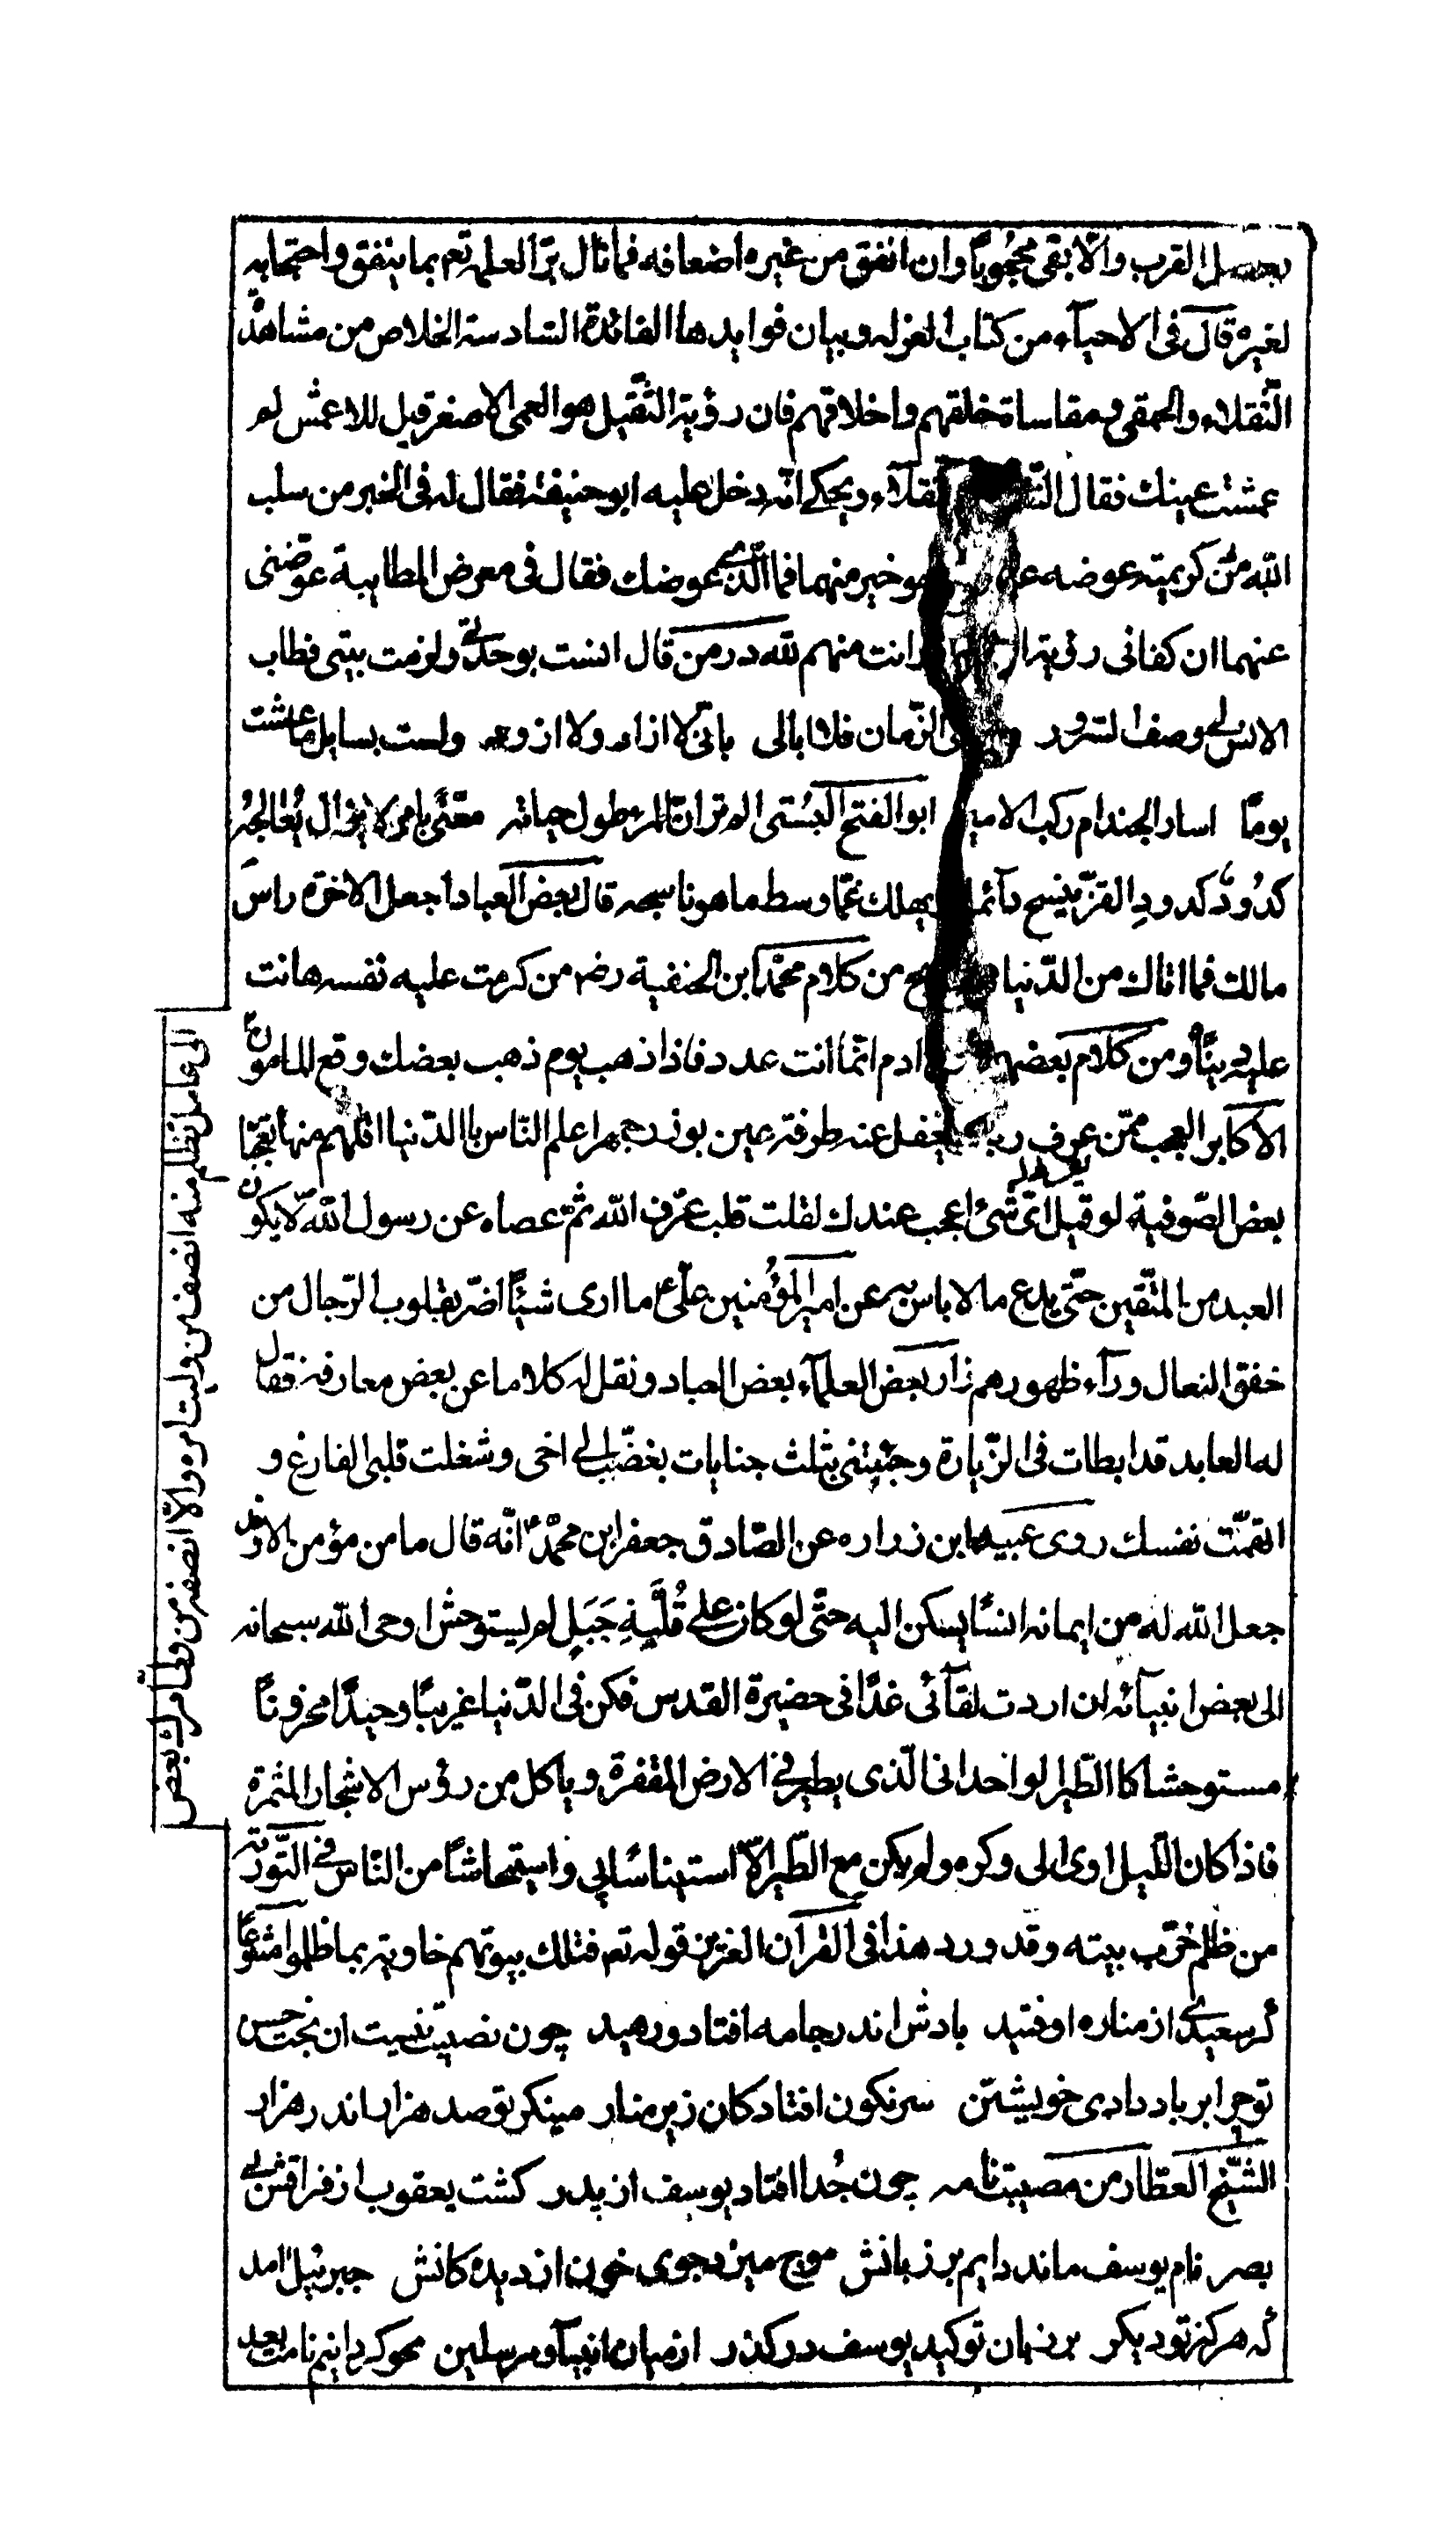 يحصل القرب والّا بقى محجُوباً وان انفق من غيره اضعافه فما نال برّ العلمه تعم بما ينفق واحتجابه
لغيره قال فى الاحيآء من كتاب العزله وبيان فوايدها الفائدة السّادسة الخلاص من مشاهدة
الثّقلاء والحمقى ومقاساة خلقهم واخلاقهم فان رؤية الثّقيل هو العمى الاصغر قيل للاعمش لم
عمشت عينك فقال النّظر الثقلاء ويحكى انّه دخل عليه ابو حنيفة فقال له فى الخبر من سلب
الله من كريمته عوضه عنهما هو خير منهما فما الّذى عوضك فقال فى معرض المطايبة عوّضنى
عنهما ان كفانى رؤية وانت منهم لله در من قال انست بوحدتى ولزمت بيتى فطاب
الانس لى وصف السّرور الزّمان فلا ابالى بانّى لا ازار ولا ازور ولست بسايل ما عشت
يومًا اسار الجند ام ركب الامير ابو الفتح البُستى الم تر انّ المرء طول حياته معنّى بامر لا يزال يُعالجُه
كدُودٌ كدودِ القزّ ينسج دآئما ويهلك غمّا وسط ما هو ناسجه قال بعض العباد اجعل الاخرة راس
مالك فما اتاك من الدّنيا ربح من كلام محمّد ابن الحنفية رضى من كرمت عليه نفسه هانت
عليه دنياه ومن كلام بعضهم ادم انّما انت عدد فاذا ذهب يوم ذهب بعضك وقع المامون
الاكابر العجب ممّن عرف ربه يغفل عنه طرفة عين بوذرجمهر اعلم النّاس باالدّنيا اقلّهم منها تعجّبا
بعض الصّوفية لو قيل اىّ شئ اعجب عندك لقلت قلب عرّف الله ثمّ عصاه عن رسول الله لا يكون
العبد من المتّقين حتّى يدع ما لا باس به عن امير المؤمنين علىّ ع ما ارى شيئًا اضرّ بقلوب الرّجال من
خفق النعال ورآء ظهورهم زار بعض العلمآء بعض العباد ونقل له كلاما عن بعض معارفه فقال
له العابد قد ابطات فى الزّيارة وجئتنى بثلث جنايات بغضّت الى اخى وشغلت قلبى الفارغ و
اتهمّت نفسك روى عبيد ابن زراره عن الصّادق جعفر ابن محمّد ع انّه قال ما من مؤمن الا وقد
جعل الله له من ايمانه انسًا يسكن اليه حتّى لو كان على قُلّةِ جَبَلٍ لم يستوحش اوحى الله سبحانه
الى بعض انبيآئه ان اردت لقآئى غدًا فى حضيرة القدس فكن فى الدّنيا غريبًا وحيدًا محزونًا
مستوحشا كا الطّير الواحدانى الّذى يطير فى الارض المقفرة وياكل من رؤس الاشجار المثمرة
فاذا كان اللّيل اوى الى وكره ولم يكن مع الطّير الّا استيناسًا بى واستيحاشًا من النّاس فى التّورية
من ظلم خرّب بيته وقد ورد هذا فى القرآن العزيز قوله تعم فتلك بيوتهم خاوية بما ظلموا مثنوى
گر سعيدى از مناره اوفتيد بادش اندر جامه افتاد ورهيد چون نصيبت نيست ان بخت حسن
تو چرا بر باد دادى خويشتن سرنكون افتادكان زير منار مينكر تو صد هزار اندر هزار
الشّيخ العطّار من مصيبتنامه چون جُدا افتاد يوسف از پدر كشت يعقوب از فراقش بى
بصر نام يوسف ماند دايم بر زبانش موج ميزد جوى خون از ديدهكانش جبرئيل امد
كه هركز تو ديكر بر زبان تو كيد يوسف در كذر از ميان انبيآ ومرسلين محو كردانيم نامت بعد
الى عامل تظلم منه انصف من وليت امره والّا انصفه من ولّى امرك بعض